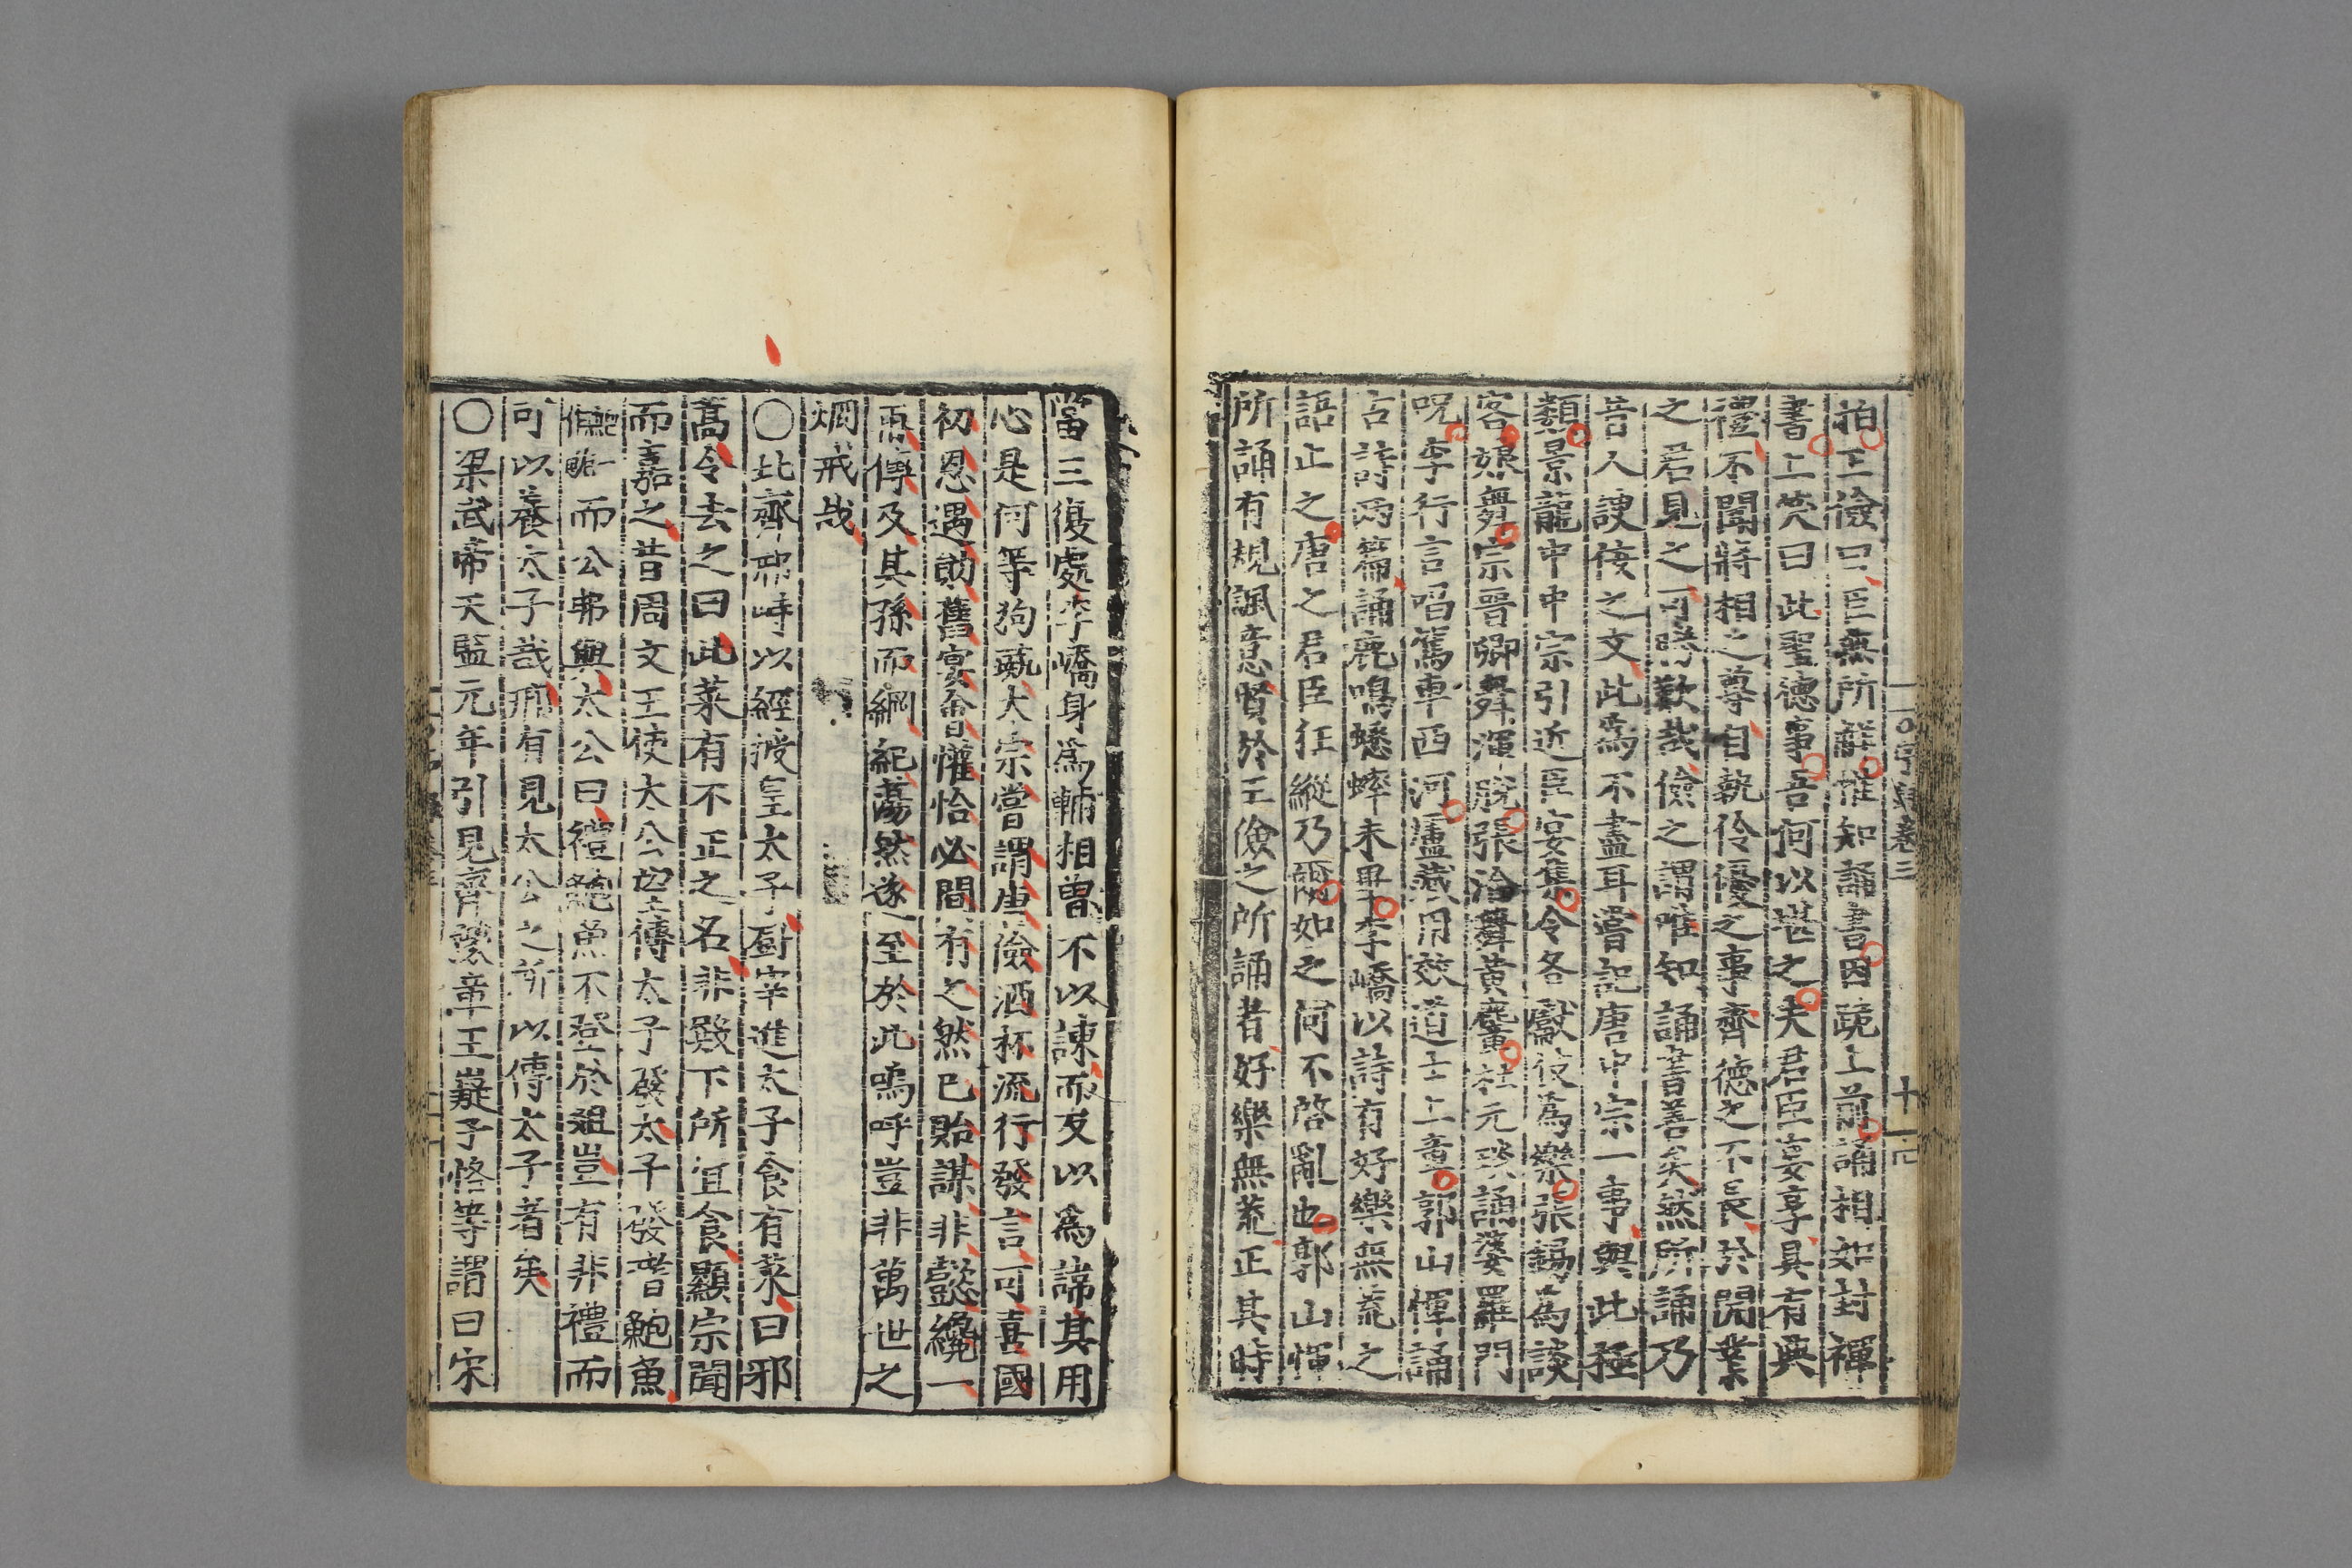 拍王儉曰臣無所解惟知誦書因䟽上前誦相如封禪
書上笑曰此聖德事吾何以堪之夫君臣宴享具有典
禮不聞將相之尊自執伶優之事齊德之不長於開業
之君見之可勝歎哉儉之謂唯知誦書善矣然所誦乃
昔人諛佞之文此爲不盡耳嘗記唐中宗一事與此極
類景龍中中宗引近臣宴集令各獻伎爲樂張錫爲談
容娘舞宗晋卿舞渾脫張洽舞黄麞杜元琰誦婆羅門
呪李行言唱駕車西河盧藏用效道士上章郭山惲誦
古詩两篇誦鹿鳴蟋蟀未畢李嶠以詩有好樂無荒之
語止之唐之君臣狂縱乃爾如之何不啓亂也郭山惲
所誦有規諷意賢於王儉之所誦者好樂無荒正其時
二〇卷三
十一
當三復處李嶠身爲輔相曾不以諫而反以爲諱其用
心是何等狗彘太宗嘗謂唐儉酒杯流行發言可喜國
初恩遇勛舊宴會懽恰必間有之然已貽謀非懿纔一
再傳及其孫而綱紀蕩然遂至於此嗚呼豈非萬世之
烱戒哉
〇北齊邢峙以經授皇太子厨宰進太子食有菜曰邪
蒿令去之曰此菜有不正之名非殿下所宜食顯宗聞
而嘉之昔周文王使太公望傅太子發太子發嗜鮑魚
而公弗與太公曰禮鮑魚不登於俎豈有非禮而
可以養太子哉有見太公之所以傅太子者矣
〇梁武帝天監元年引見齊豫章王嶷子恪等謂曰宋